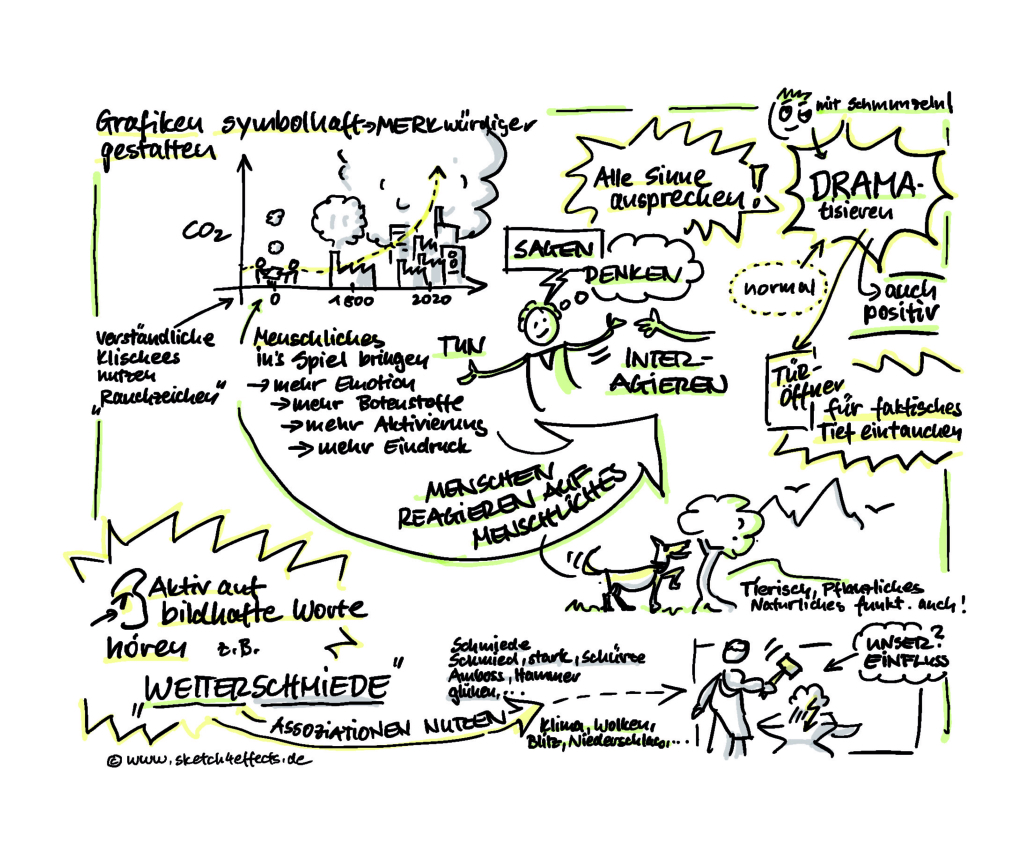 Grafiken symbolhaft → MERKwürdiger
gestalten
CO2
0
1800
2020
verständliche
Klischees
nutzen
"Rauchzeichen"
Menschliches
in's Spiel bringen
→ mehr Emotion
→ mehr Botenstoffe
→ mehr Aktivierung
→ mehr Eindruck
Alle Sinne
ansprechen!
mit Schmunzeln!
DRAMA-
tisieren
normal
→ auch
positiv
TÜR-
Öffner
für faktisches
Tief eintauchen
SAGEN
DENKEN
TUN
INTER-
AGIEREN
MENSCHEN
REAGIEREN AUF
MENSCHLICHES
Tierisch, Pflanzliches
Natürliches funkt. auch!
Aktiv auf
bildhafte Worte
hören z.B.
"WETTERSCHMIEDE"
ASSOZIATIONEN NUTZEN
Schmiede
Schmied, stark, Schürze
Amboss, Hammer
glühen,...
Klima, Wolken,
Blitz, Niederschlag,...
UNSER?
EINFLUSS
© www.sketch4effects.de